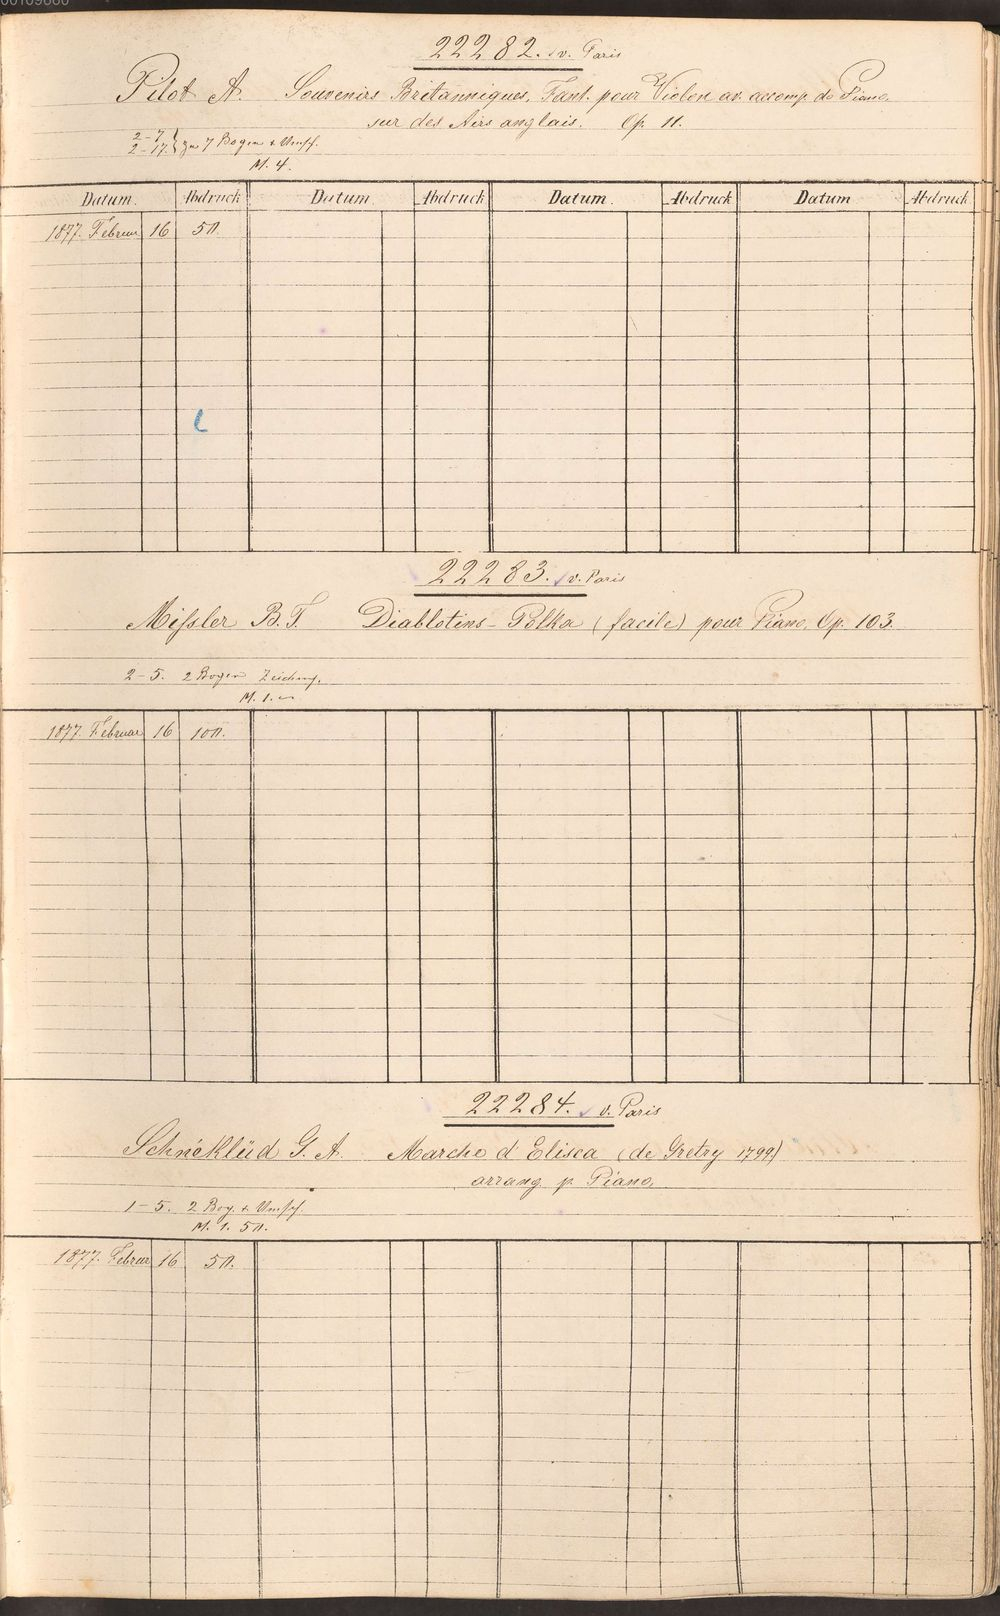 22282. v. Paris
Pilot A. Souvenirs Britanniques, Fant. pour Violon av. accomp. de Piano.
sur des Airs anglais. Op. 11.
2-7
2-17. zu 7 Bogen + Umsch.
M. 4.
Datum. Abdruck Datum Abdruck Datum. Abdruck Datum Abdruck
1877. Februar 16 50.
22283. v. Paris
Missler B. T. Diablotins-Polka (facile) pour Piano. Op. 103.
2-5. 2 Bogen
M. 1.-
1877. Februar 16 100.
22284. v. Paris
Schnéklüd G. A. Marche d'Elisca (de Gretry 1799)
arrang p. Piano.
1-5. 2 Bog. + Umsch.
M. 1. 50.
1877. Februar 16 50.